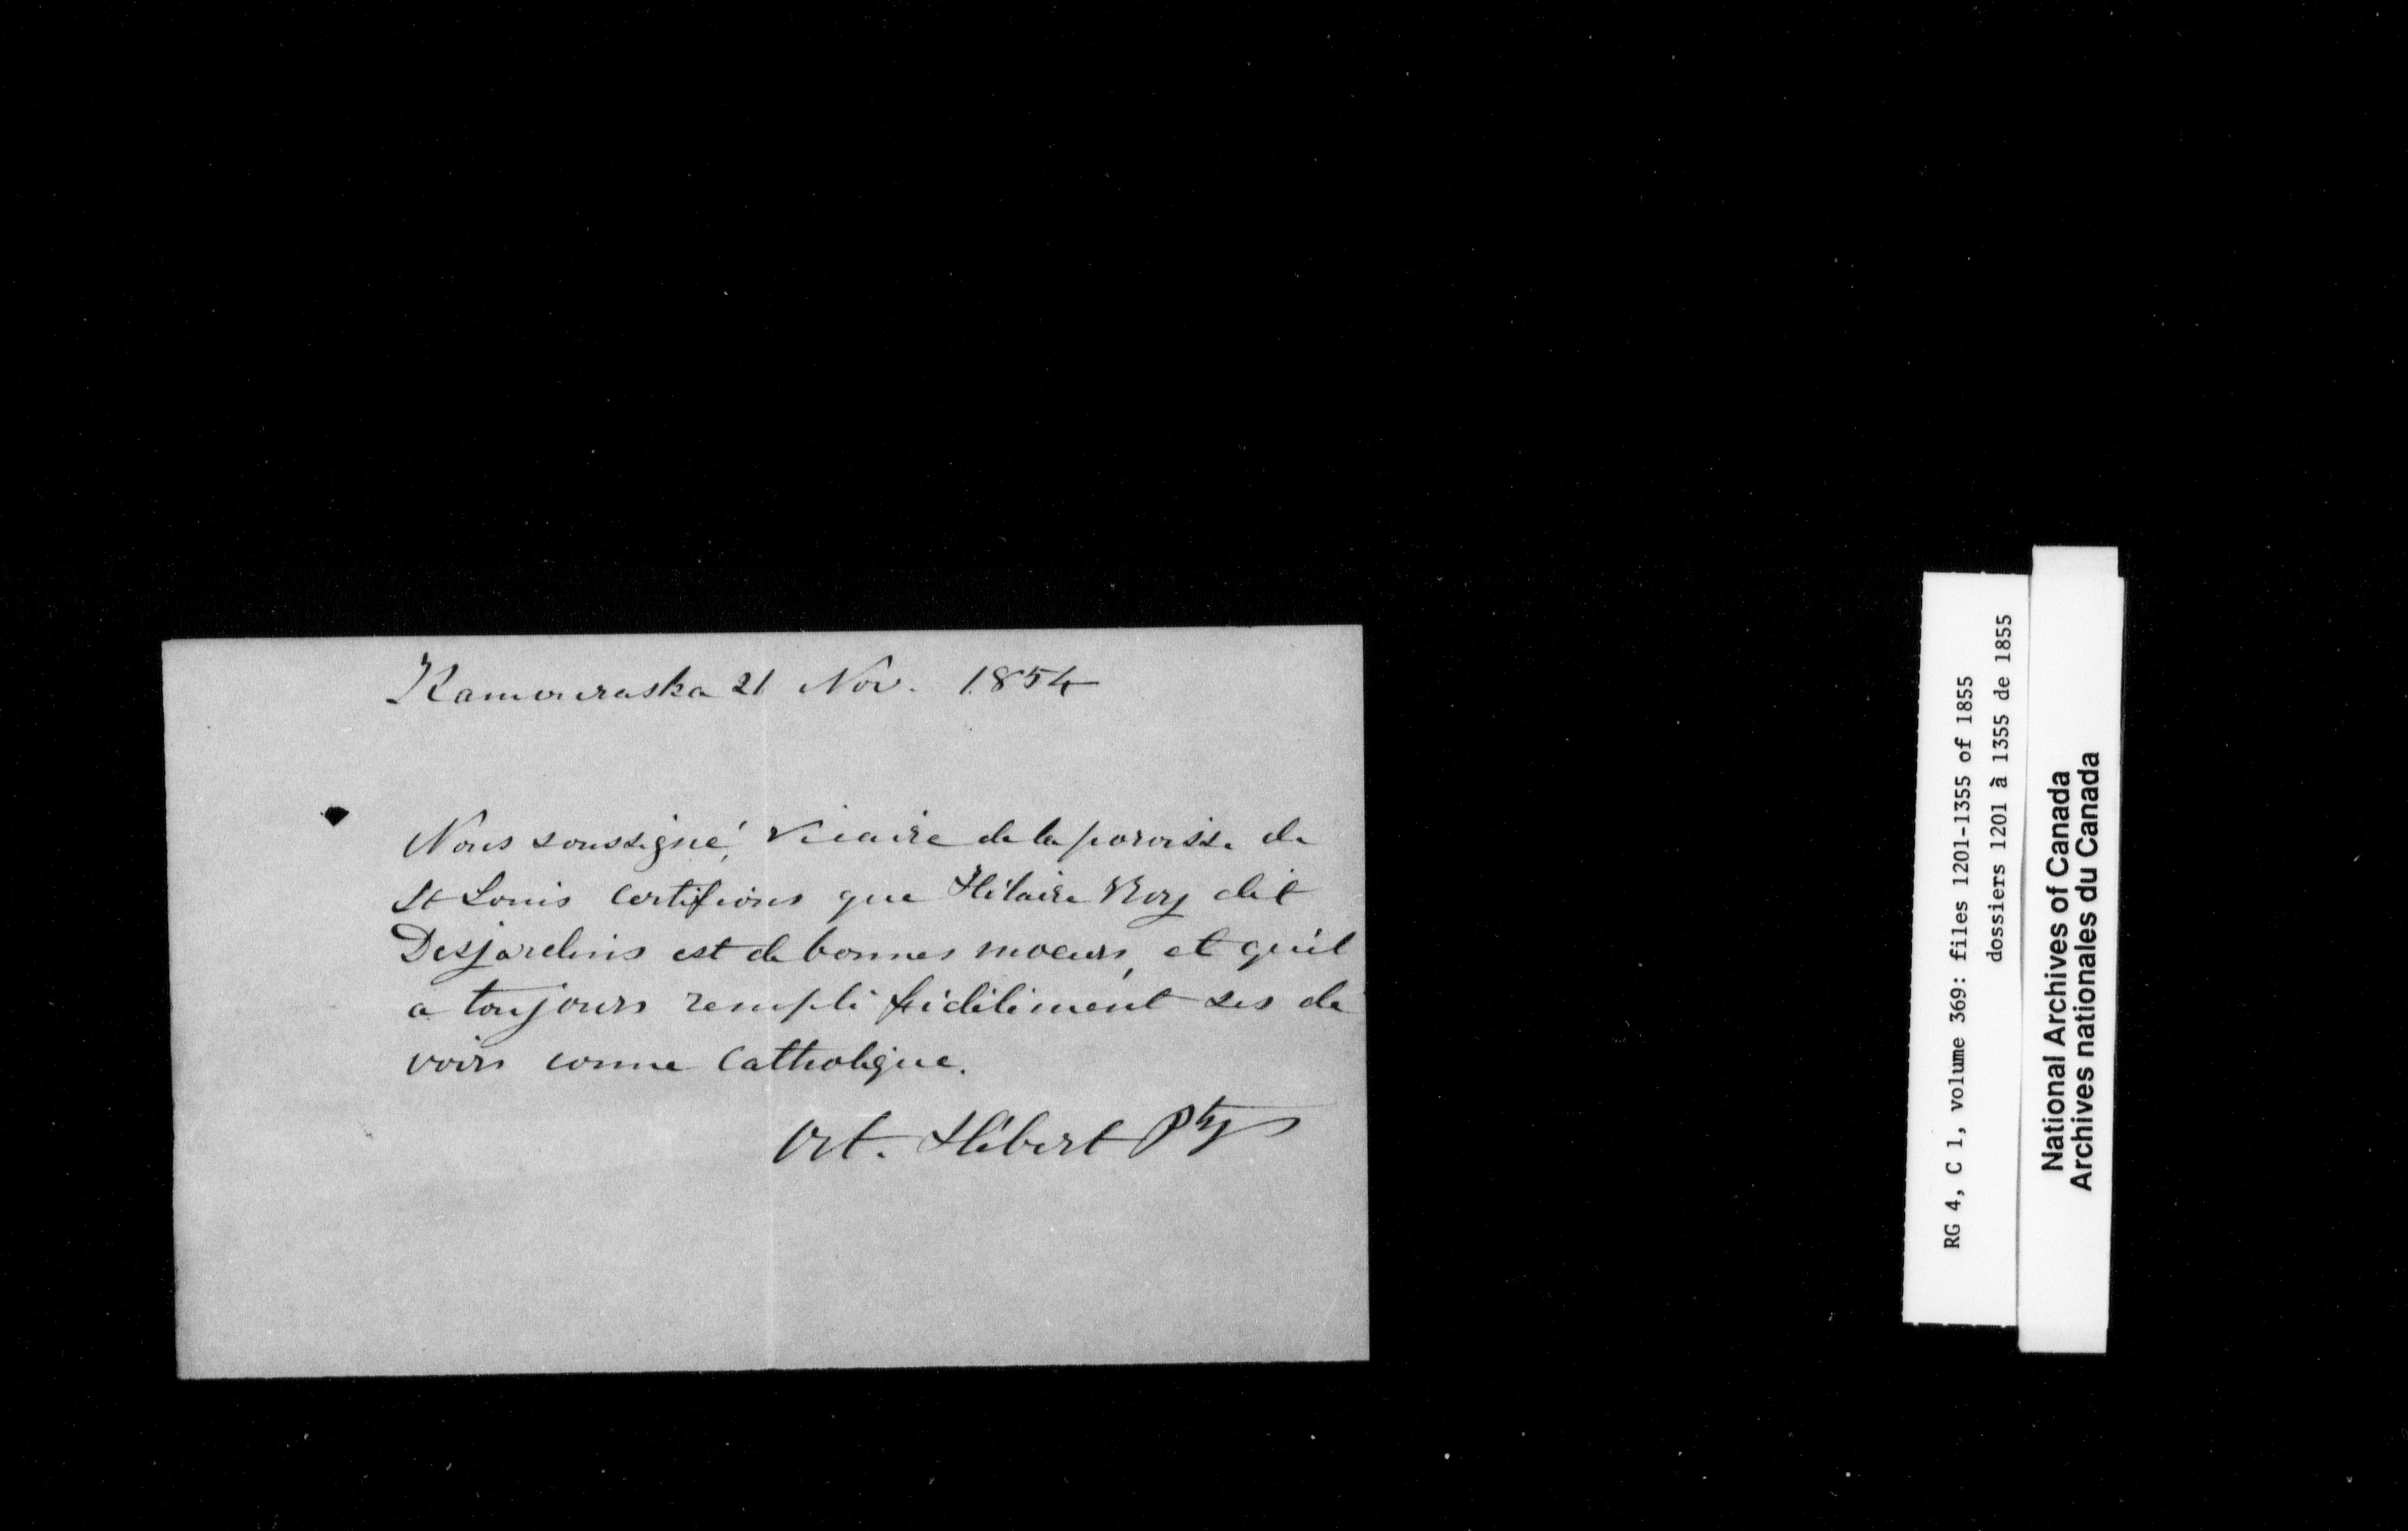 Kamouraska 21 Nov. 1854
Nous soussigné, Vicaire de la paroisse de
St Louis certifions que Hilaire Roy dit
Desjardins est de bonnes moeurs, et qu'il
a toujours rempli fidèlement ses de
voirs comme Catholique.
Hébert Ptre
RG 4, C 1, volume 369: files 1201-1355 of 1855
dossiers 1201 à 1355 de 1855
National Archives of Canada
Archives nationales du Canada